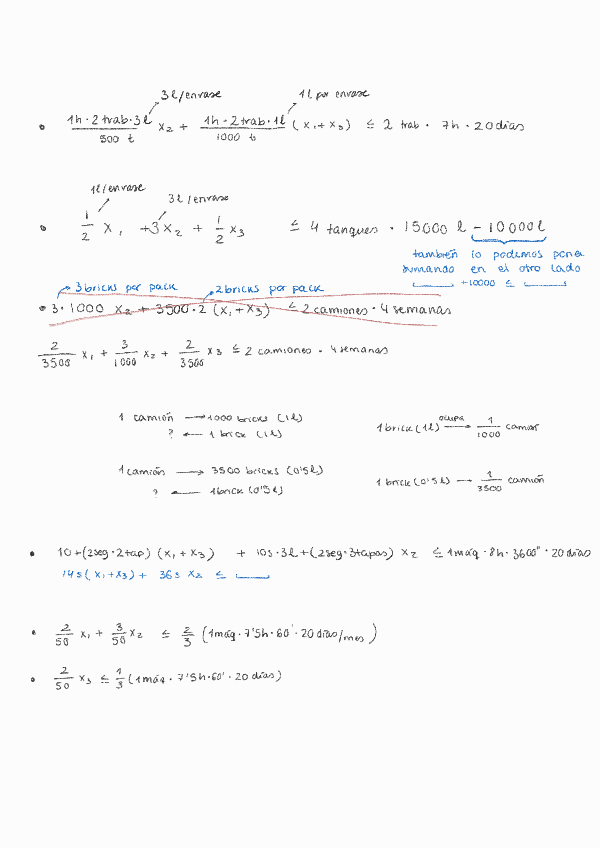 3l/envase 1l por envase
• 1h·2trab·3l/500 t x₂ + 1h·2trab·1l/1000 t (x₁+x₃) ≤ 2 trab · 7h · 20días
1l/envase
3l/envase
• 1/2 x₁ +3x₂ + 1/2 x₃ ≤ 4 tanques · 15000 l - 10000l
también lo podemos poner
sumando en el otro lado
+10000 ≤
3bricks por pack 2bricks por pack
• 3·1000 x₂ + 3500·2 (x₁+x₃) ≤ 2camiones·4semanas
2/3500 x₁ + 3/1000 x₂ + 2/3500 x₃ ≤ 2camiones·4semanas
1 camión → 1000 bricks (1l)
? ← 1brick (1l)
1brick(1l) ocupa → 1/1000 camión
1camión → 3500 bricks (0'5l)
? ← 1brick (0'5l)
1brick(0'5l) → 1/3500 camión
• 10+(2seg·2tap) (x₁+x₃) + 10s·3l+(2seg·3tapas) x₂ ≤ 1máq·8h·3600''·20días
14s(x₁+x₃)+ 36s x₂ ≤
• 2/50 x₁ + 3/50 x₂ ≤ 2/3 (1máq·7'5h·60'·20días/mes)
• 2/50 x₃ ≤ 1/3 (1máq·7'5h·60'·20días)